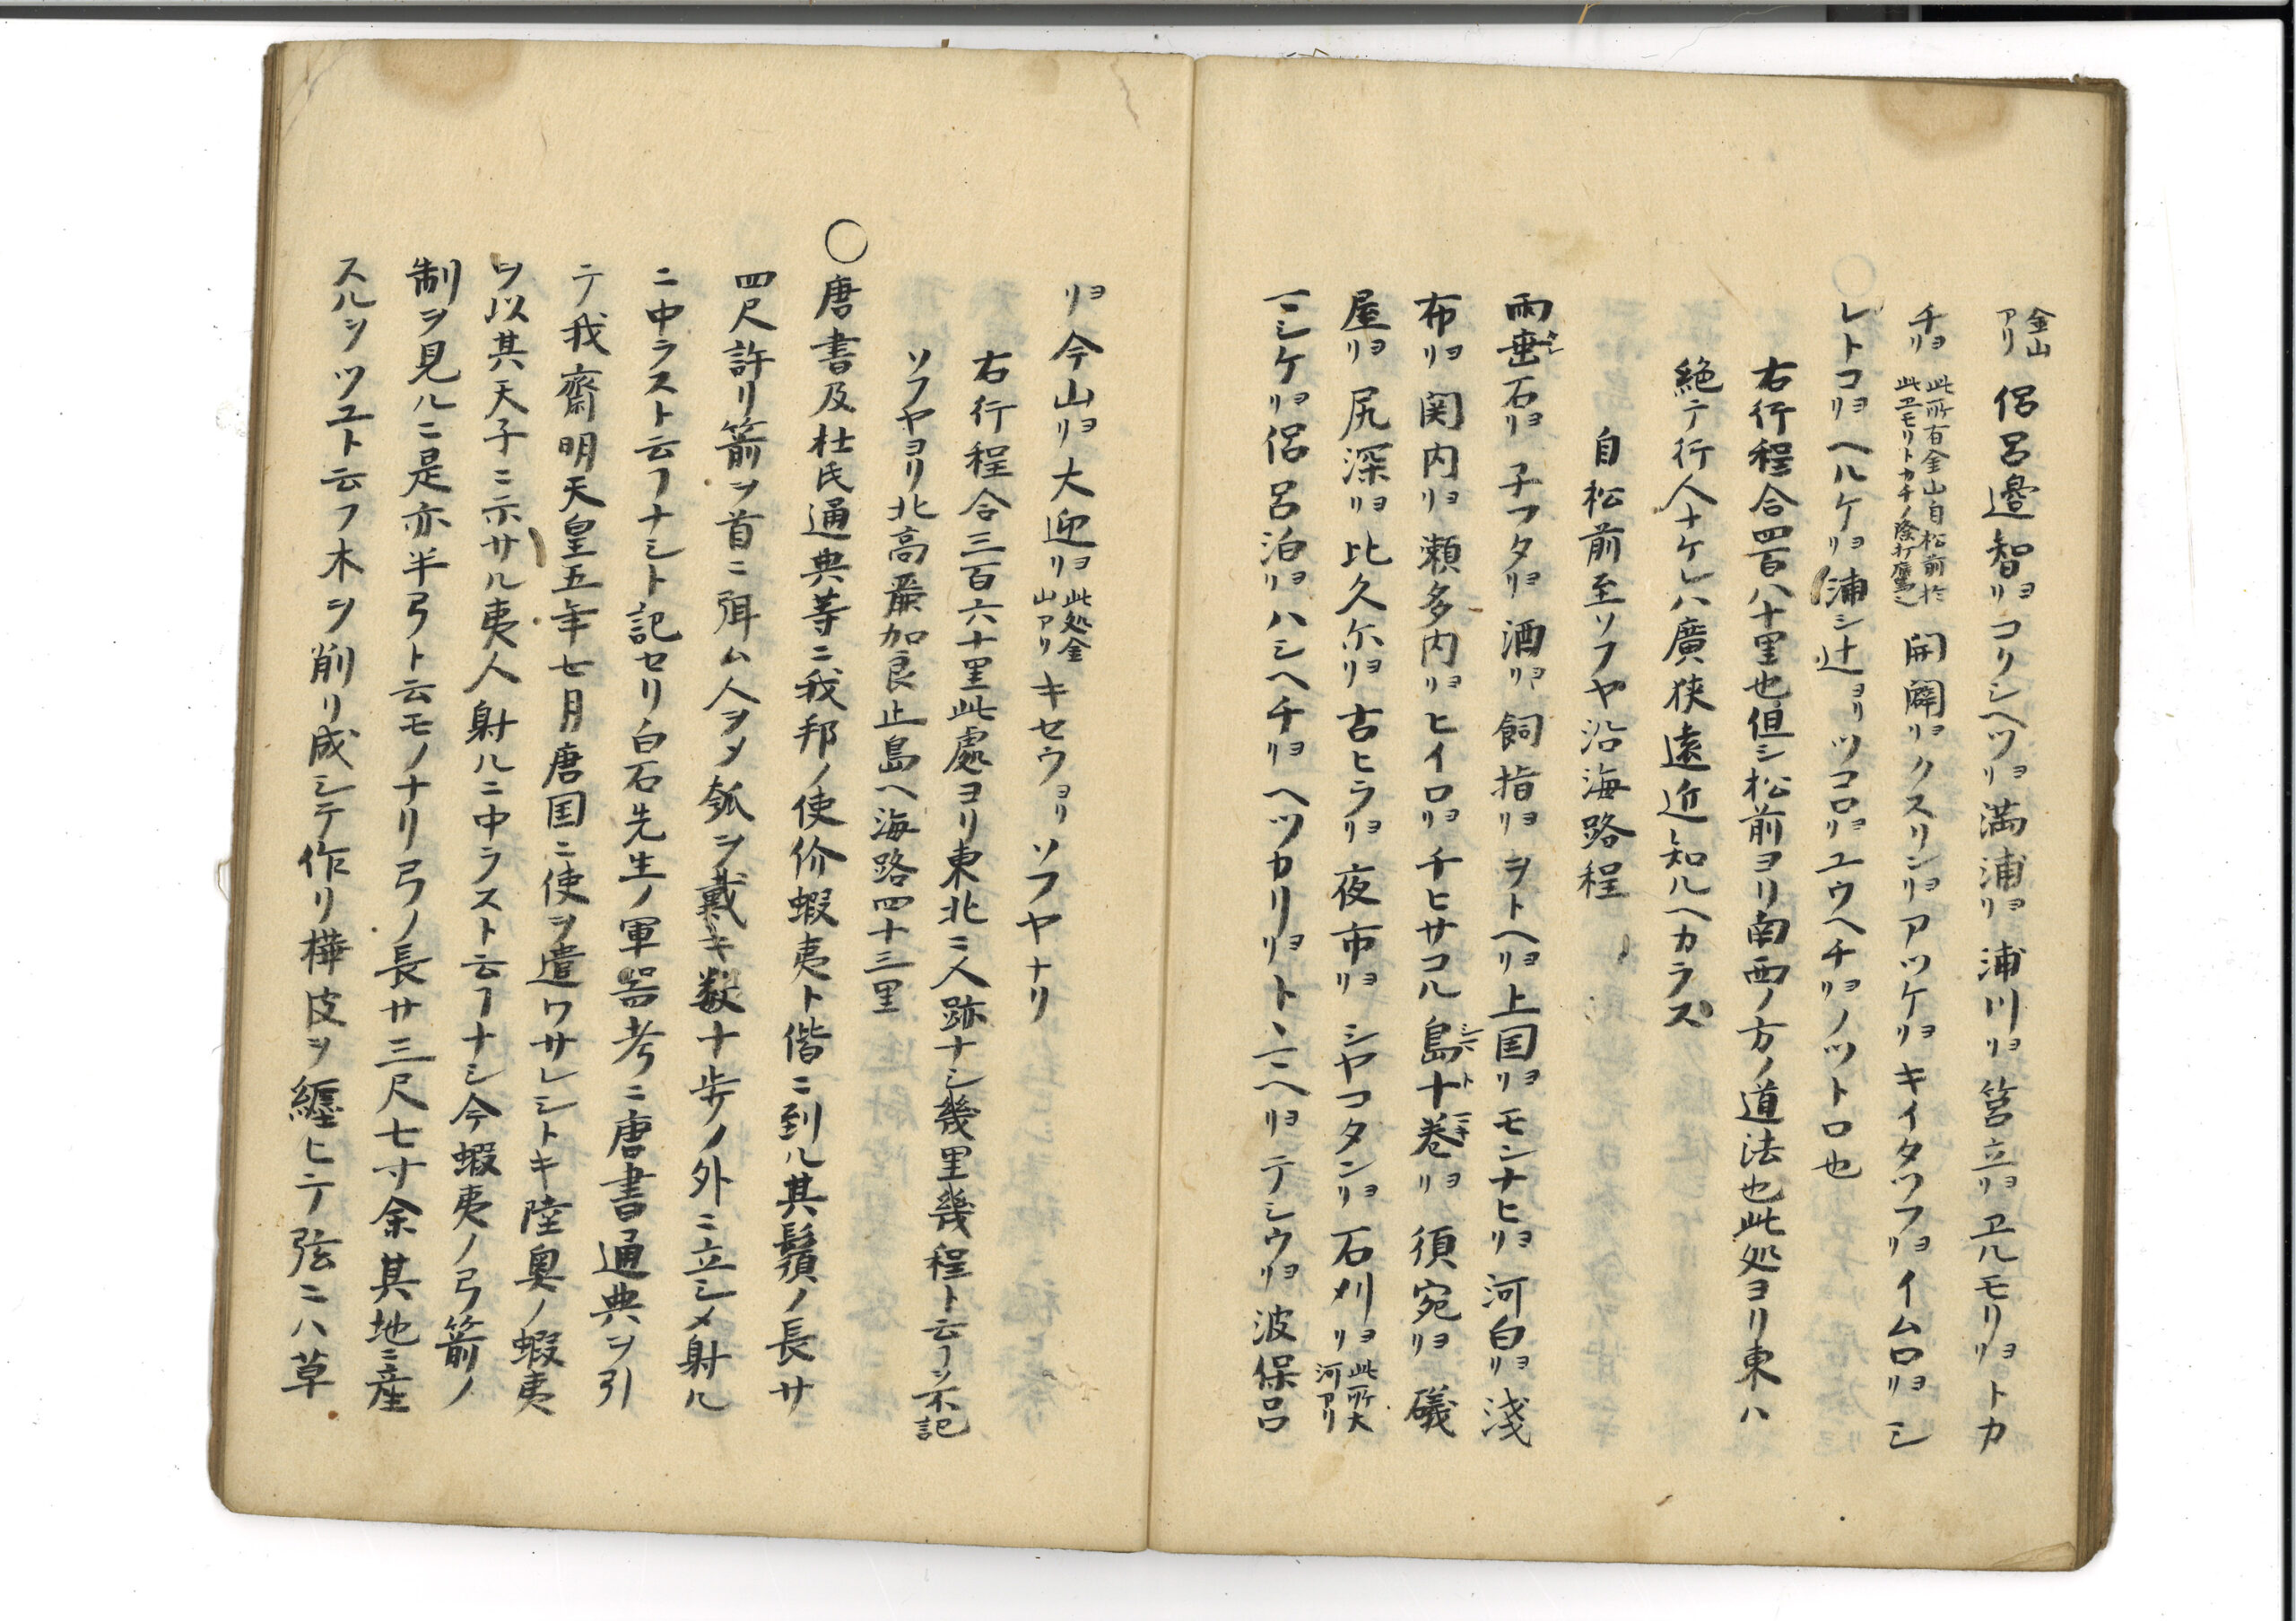 金山アリ 侶呂邉智ヨリコリシヘツヨリ満浦ヨリ浦川ヨリ筥立ヨリヱルモリヨリトカ
チヨリ 此所有金山自松前於此ヱモリトカチノ際打鷹 開闢ヨリクスリシヨリアツケヨリキイタツフヨリイムロヨリシ
レトコヨリヘルケヨリ浦シ辻ヨリツコロヨリユウヘチヨリノツトロ也
右行程合四百八十里也但シ松前ヨリ南西ノ方ノ道法也此処ヨリ東ハ
絶テ行人ナケレハ廣狭遠近知ルヘカラス
自松前至ソフヤ沿海路程
雨垂石ヨリ子フタヨリ酒ヨリ飼指ヨリヲトヘヨリ上国ヨリモシナヒヨリ河白ヨリ淺
布ヨリ関内ヨリ瀬多内ヨリヒイロヨリチヒサコル島十巻ヨリ須宛ヨリ礒
屋ヨリ尻深ヨリ比久尓ヨリ古ヒラヨリ夜市ヨリシヤコタンヨリ石刈ヨリ 此所大河アリ
マシケヨリ侶呂泊ヨリハシヘチヨリヘツカリヨリトヽマヘヨリテシウヨリ波保呂
ヨリ今山ヨリ大迎ヨリ 此処金山アリ キセウヨリソフヤナリ
右行程合三百六十里此處ヨリ東北ニ人跡ナシ幾里幾程ト云フヿヲ不記
ソフヤヨリ北高麗加良止島ヘ海路四十三里
〇唐書及杜氏通典等ニ我邦ノ使价蝦夷ト偕ニ到ル其鬚ノ長サ
四尺許リ箭ヲ首ニ珥ム人ヲメ瓠ヲ戴キ数十歩ノ外ニ立シメ射ル
ニ中ラスト云フナシト記セリ白石先生ノ軍器考ニ唐書通典ヲ引
テ我齋明天皇五年七月唐国ニ使ヲ遣ワサレシトキ陸奥ノ蝦夷
ヲ以其天子ニ示サル夷人射ルニ中ラスト云フナシ今蝦夷ノ弓箭ノ
制ヲ見ルニ是亦半弓ト云モノナリ弓ノ長サ三尺七寸余其地ニ産
スルヲツユト云フ木ヲ削リ成シテ作リ樺皮ヲ纒ヒテ弦ニハ草